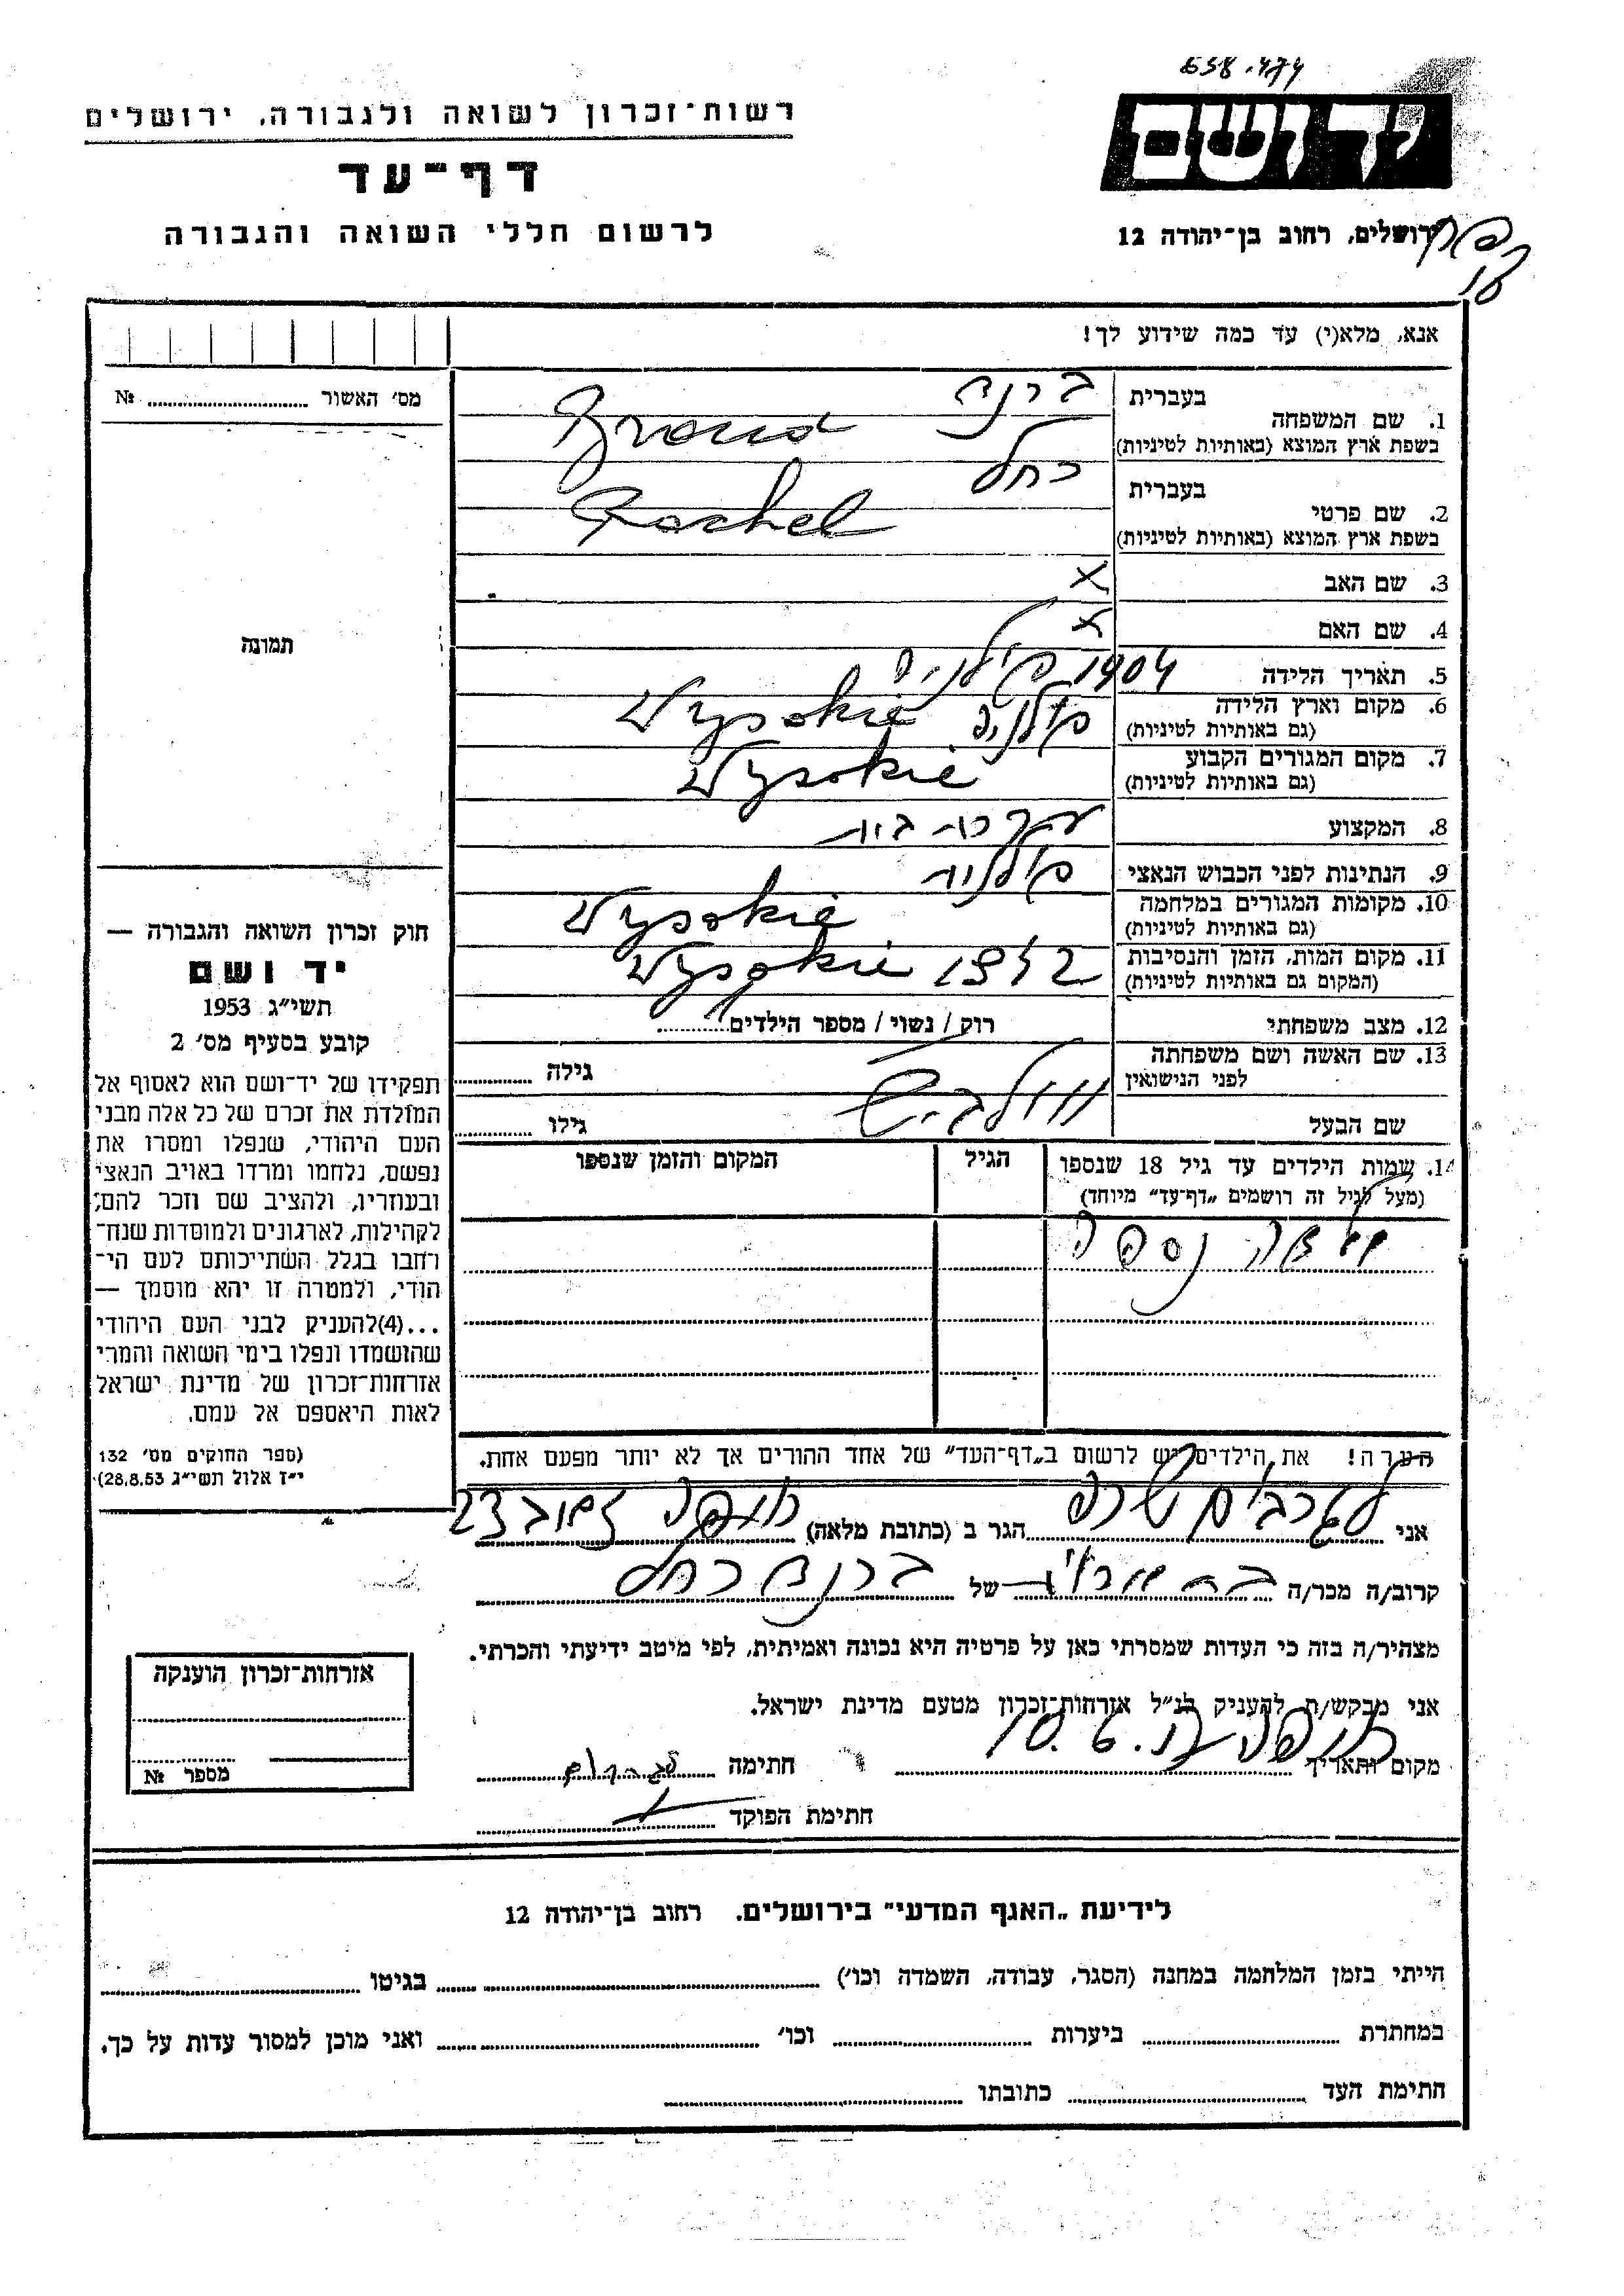 638.474
רשות־זכרון לשואה ולגבורה, ירושלים
דף־עד
לרשום חללי השואה והגבורה
יד ושם
ירושלים, רחוב בן־יהודה 12
אנא, מלא(י) עד כמה שידוע לך!
מס׳ האשור № 
בעברית ברנד
1. שם המשפחה
בשפת ארץ המוצא (באותיות לטיניות) Brand
בעברית רחל
2. שם פרטי
בשפת ארץ המוצא (באותיות לטיניות) Rachel
3. שם האב X
4. שם האם X
5. תאריך הלידה 1904 פולניה
6. מקום וארץ הלידה
(גם באותיות לטיניות) פולניה Wysokie
7. מקום המגורים הקבוע
(גם באותיות לטיניות) Wysokie
8. המקצוע עקרת בית
9. הנתינות לפני הכבוש הנאצי פולנית
10. מקומות המגורים במלחמה
(גם באותיות לטיניות) Wysokie
11. מקום המות, הזמן והנסיבות
(המקום גם באותיות לטיניות) Wysokie 1942
12. מצב משפחתי רוק / נשוי / מספר הילדים
13. שם האשה ושם משפחתה
לפני הנישואין
גילה
שם הבעל
גילו
14. שמות הילדים עד גיל 18 שנספו
(מעל לגיל זה רושמים „דף־עד״ מיוחד)
הגיל
המקום והזמן שנספו
נספה
הערה! את הילדים יש לרשום ב„דף־העד״ של אחד ההורים אך לא יותר מפעם אחת.
תמונה
חוק זכרון השואה והגבורה —
יד ושם
תשי״ג 1953
קובע בסעיף מס׳ 2
תפקידו של יד־ושם הוא לאסוף אל
המולדת את זכרם של כל אלה מבני
העם היהודי, שנפלו ומסרו את
נפשם, נלחמו ומרדו באויב הנאצי
ובעוזריו, ולהציב שם וזכר להם,
לקהילות, לארגונים ולמוסדות שנח־
רחבו בגלל השתייכותם לעם הי־
הודי, ולמטרה זו יהא מוסמך —
...(4)להעניק לבני העם היהודי
שהושמדו ונפלו בימי השואה והמרי
אזרחות־זכרון של מדינת ישראל
לאות היאספם אל עמם.
(ספר החוקים מס׳ 132
י״ז אלול תשי״ג 28.8.53)
אני הגר ב (כתובת מלאה) 23
קרוב/ה מכר/ה של ברנד רחל
מצהיר/ה בזה כי העדות שמסרתי כאן על פרטיה היא נכונה ואמיתית, לפי מיטב ידיעתי והכרתי.
אני מבקש/ת להעניק לנ״ל אזרחות־זכרון מטעם מדינת ישראל.
מקום ותאריך 10.6. חתימה
חתימת הפוקד
אזרחות־זכרון הוענקה
מספר №
לידיעת „האגף המדעי״ בירושלים. רחוב בן־יהודה 12
הייתי בזמן המלחמה במחנה (הסגר, עבודה, השמדה וכו׳) בגיטו
במחתרת ביערות וכו׳ ואני מוכן למסור עדות על כך.
חתימת העד כתובתו